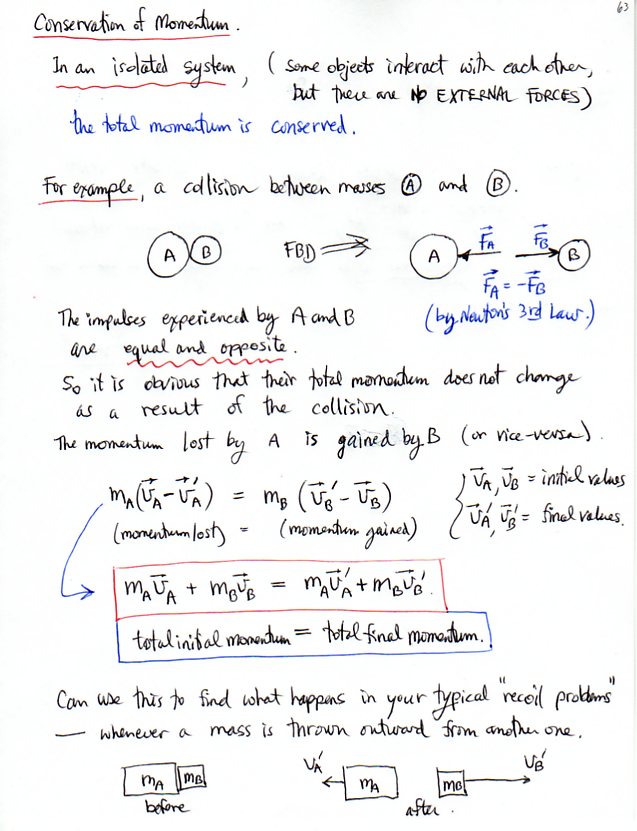 63
Conservation of Momentum.
In an isolated system, (some objects interact with each other,
but there are NO EXTERNAL FORCES)
the total momentum is conserved.
For example, a collision between masses Ⓐ and Ⓑ.
A B FBD ⟹ A F⃗_A F⃗_B B
F⃗_A = -F⃗_B
(by Newton's 3rd Law.)
The impulses experienced by A and B
are equal and opposite.
So it is obvious that their total momentum does not change
as a result of the collision.
The momentum lost by A is gained by B (or vice-versa).
m_A(v⃗_A - v⃗_A') = m_B(v⃗_B' - v⃗_B)
(momentum lost) = (momentum gained)
v⃗_A, v⃗_B = initial values
v⃗_A', v⃗_B' = final values.
m_A v⃗_A + m_B v⃗_B = m_A v⃗_A' + m_B v⃗_B'.
total initial momentum = total final momentum.
Can use this to find what happens in your typical "recoil problems"
— whenever a mass is thrown outward from another one.
m_A m_B v_A' m_A m_B v_B'
before after.